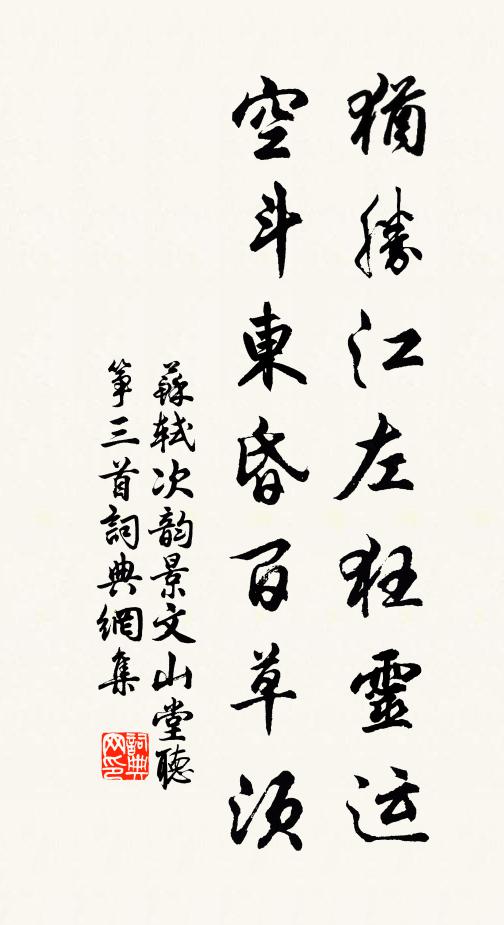 猶勝江左狂靈运
空斗東昏百草須
蘇轼次韵景文山堂聴
筝三首詞典網集
詞典网印